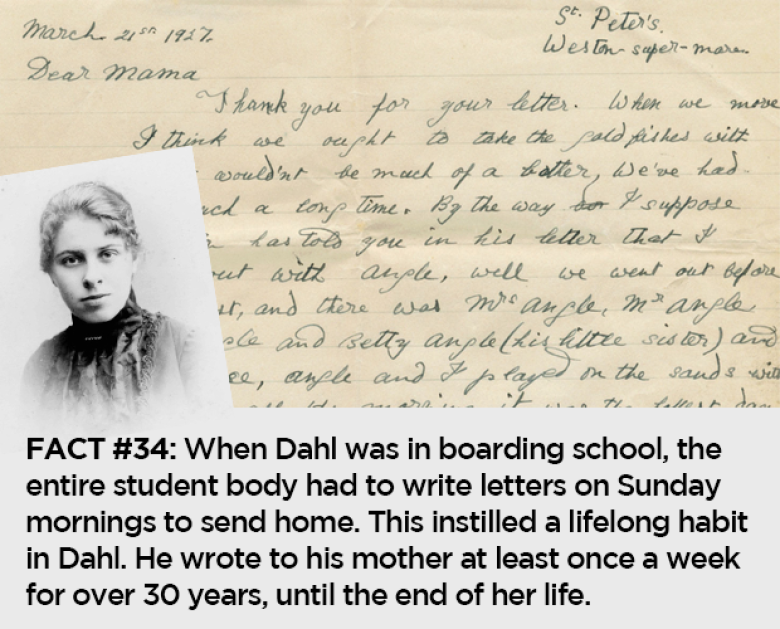 March 21st 1927.
St. Peter's.
Weston-super-mare.
Dear Mama
Thank you for your letter. When we move
I think we ought to take the gold fishes with
wouldn't be much of a botter, We've had
a long time. By the way I suppose
has told you in his letter that I
out with Angle, well we went out before
and there was Mrs Angle, Mr Angle,
and Betty Angle (his little sister) and
angle and I played on the sands with
it was the
FACT #34: When Dahl was in boarding school, the
entire student body had to write letters on Sunday
mornings to send home. This instilled a lifelong habit
in Dahl. He wrote to his mother at least once a week
for over 30 years, until the end of her life.